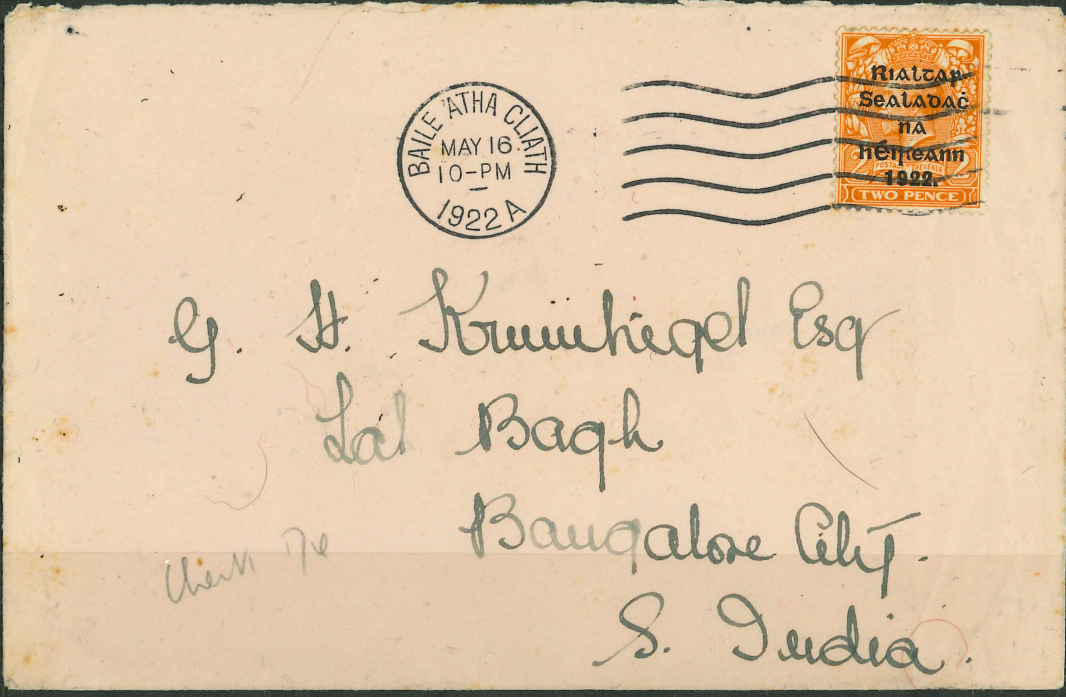 BAILE ÁTHA CLIATH
MAY 16
10-PM
1922 A
Rialtas
Sealadaċ
na
hÉireann
1922.
POSTAGE REVENUE
TWO PENCE
G. H. Krumbiegel Esq
Lal Bagh
Bangalore City.
S. India.
Check